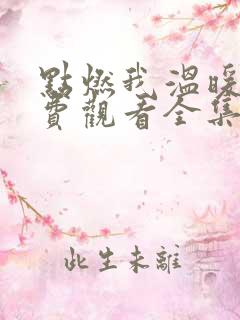 點燃我溫暖
費觀看全集
此生未離